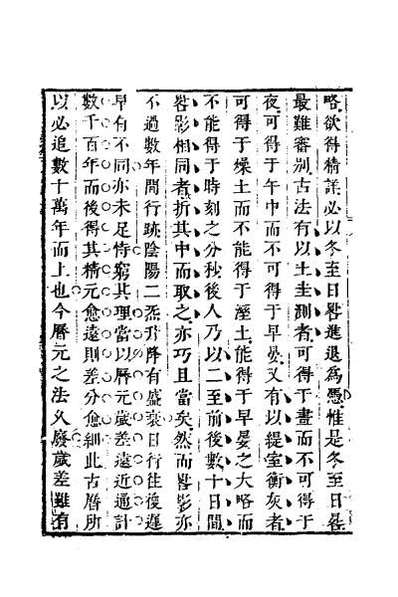 略欲得精詳必以冬至日晷進退為憑惟是冬至日晷
最難審別古法有以土圭測者可得于晝而不可得于
夜可得于午中而不可得于早晏又有以緹室衡灰者
可得于燥土而不能得于溼土能得于早晏之大略而
不能得于時刻之分秒後人乃以二至前後數十日間
晷影相同者折其中而取之亦巧且當矣然而晷影亦
不過數年間行跡陰陽二炁升降有盛衰日行往復遲
早有不同亦未足恃窮其理當以曆元歲差遠近通計
數千百年而後得其精元愈遠則差分愈細此古曆所
以必追數十萬年而上也今曆元之法久廢歲差雖有